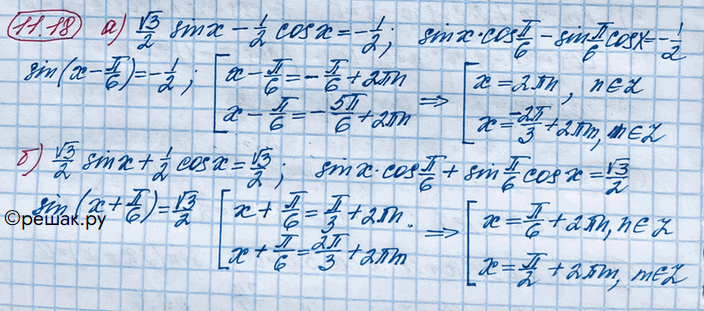 11.18 а) √3/2 sinx − 1/2 cosx = −1/2; sinx·cos π/6 − sin π/6 cosx = −1/2
sin(x − π/6) = −1/2; [ x − π/6 = −π/6 + 2πn ⟹ [ x = 2πn, n∈Z
x − π/6 = −5π/6 + 2πn x = −2π/3 + 2πm, m∈Z
б) √3/2 sinx + 1/2 cosx = √3/2; sinx·cos π/6 + sin π/6 cosx = √3/2
sin(x + π/6) = √3/2 [ x + π/6 = π/3 + 2πn. ⟹ [ x = π/6 + 2πn, n∈Z
©решак.ру
x + π/6 = 2π/3 + 2πm x = π/2 + 2πm, m∈Z